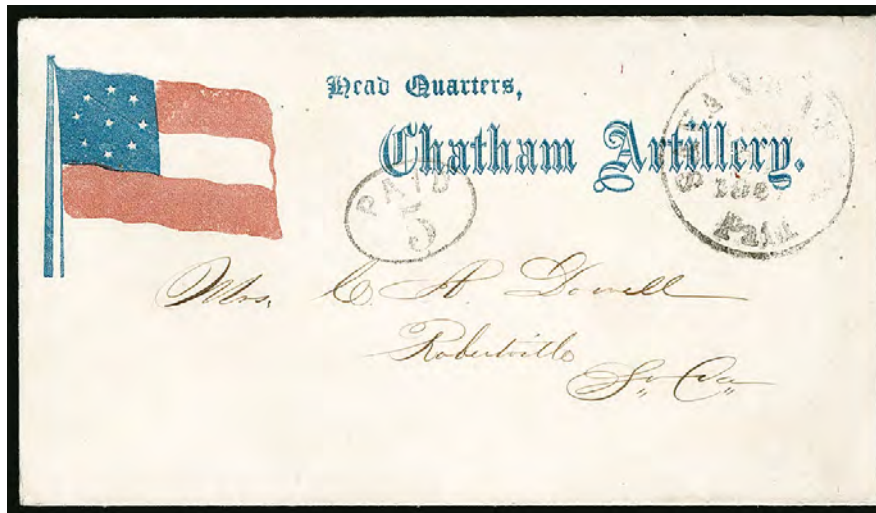 Head Quarters,
Chatham Artillery.
PAID
5
Paid
Mrs. C. A. Dowell
Robertville
So. Ca.